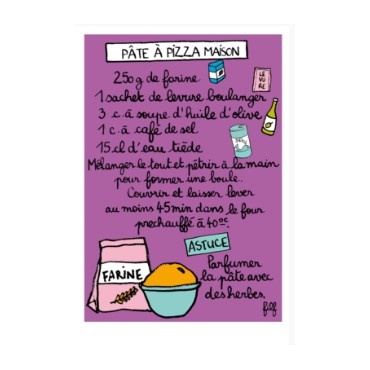 PÂTE À PIZZA MAISON
250g de farine
LE
VU
RE
1 sachet de levure boulanger
3 c.à soupe d'huile d'olive
1 c.à café de sel
15 cl d'eau tiède
Mélanger le tout et pétrir à la main
pour former une boule.
Couvrir et laisser lever
au moins 45min dans le four
prechauffé à 40°C.
ASTUCE
Parfumer
la pâte avec
des herbes.
FARINE